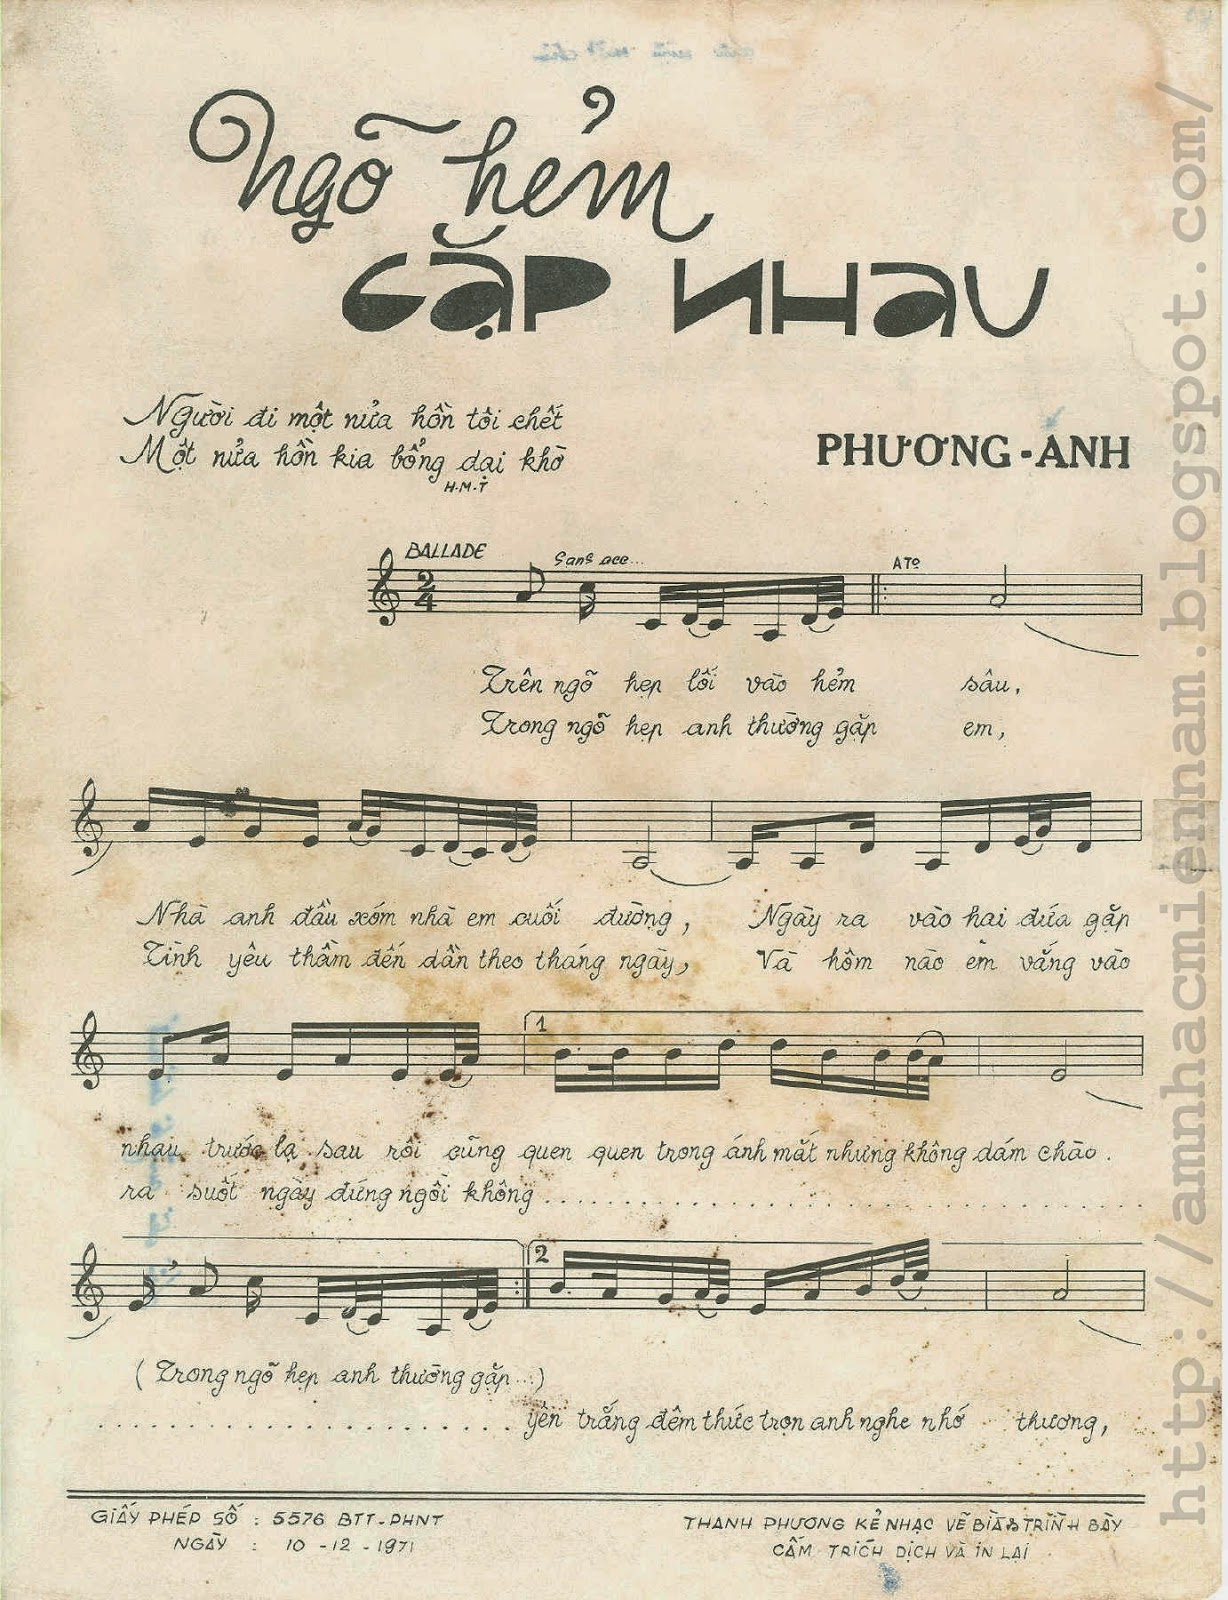 Ngõ hẻm
gặp nhau
Người đi một nửa hồn tôi chết
Một nửa hồn kia bổng dại khờ
H.M.T
PHƯƠNG-ANH
BALLADE
Sans acc...
ATº
2
4
Trên ngõ hẹp lối vào hẻm sâu,
Trong ngõ hẹp anh thường gặp em,
Nhà anh đầu xóm nhà em cuối đường, Ngày ra vào hai đứa gặp
Tình yêu thầm đến dần theo tháng ngày, Và hôm nào em vắng vào
1
nhau trước lạ sau rồi cũng quen quen trong ánh mắt nhưng không dám chào.
ra suốt ngày đứng ngồi không
2
(Trong ngõ hẹp anh thường gặp...)
yên trắng đêm thức trọn anh nghe nhớ thương,
GIẤY PHÉP SỐ : 5576 BTT-PHNT
NGÀY : 10-12-1971
THANH PHƯƠNG KẺ NHẠC VẼ BÌA & TRÌNH BÀY
CẤM TRÍCH DỊCH VÀ IN LẠI
http://amnhacmiennam.blogspot.com/